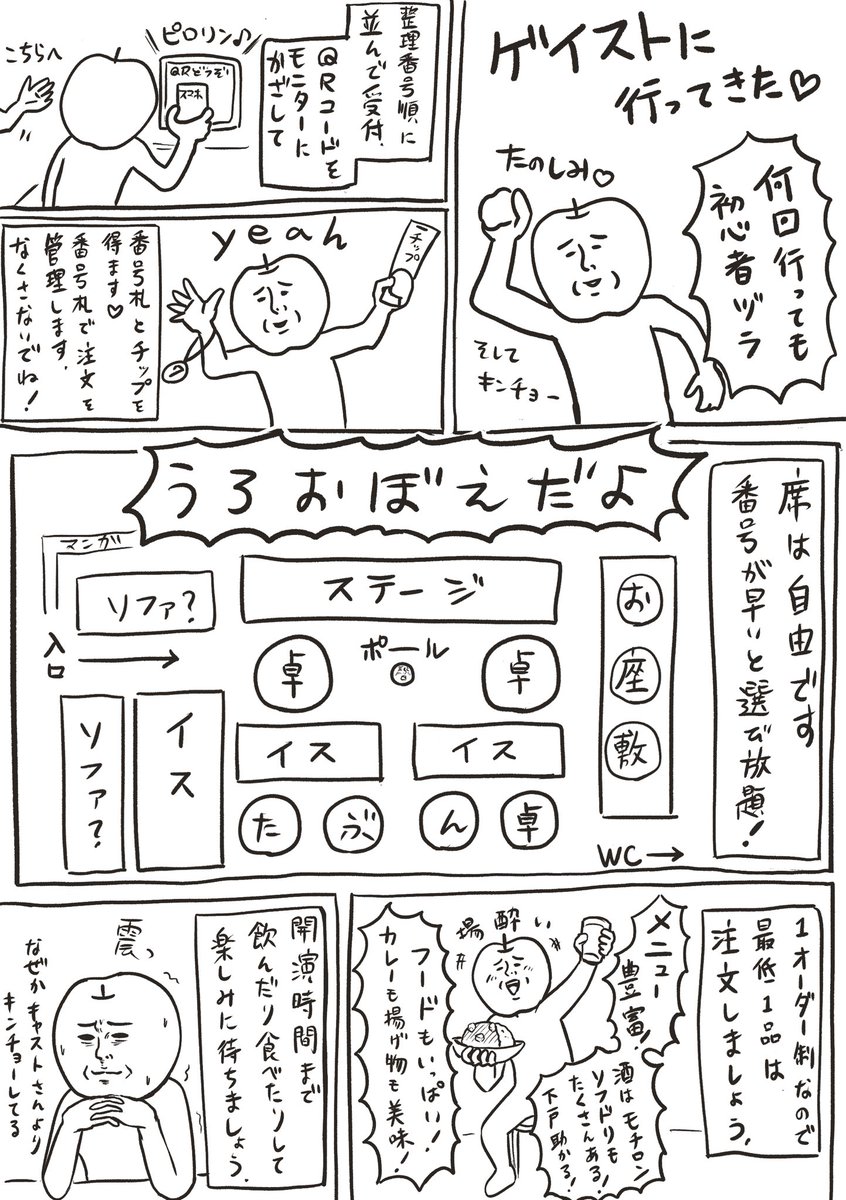 ゲイストに
行ってきた♡
何回行っても
初心者ヅラ
たのしみ♡
そして
キンチョー
整理番号順に
並んで受付。
QRコードを
モニターに
かざして
ピロリン♪
QRどうぞ
スマホ
こちらへ
yeah
チップ
番号札とチップを
得ます♡
番号札で注文を
管理します。
なくさないでね!
席は自由です
番号が早いと選び放題!
うろおぼえだよ
マンガ
ソファ?
ステージ
お
座
敷
入口
卓
ポール
卓
ソファ?
イス
イス
イス
た
ぶ
ん
卓
WC→
1オーダー制なので
最低1品は
注文しましょう。
メニュー
豊富!
酒はモチロン
ソフドリも
たくさんある!
下戸助かる!
場酔い
フードもいっぱい!
カレーも揚げ物も美味!
開演時間まで
飲んだり食べたりして
楽しみに待ちましょう。
震っ
なぜかキャストさんより
キンチョーしてる